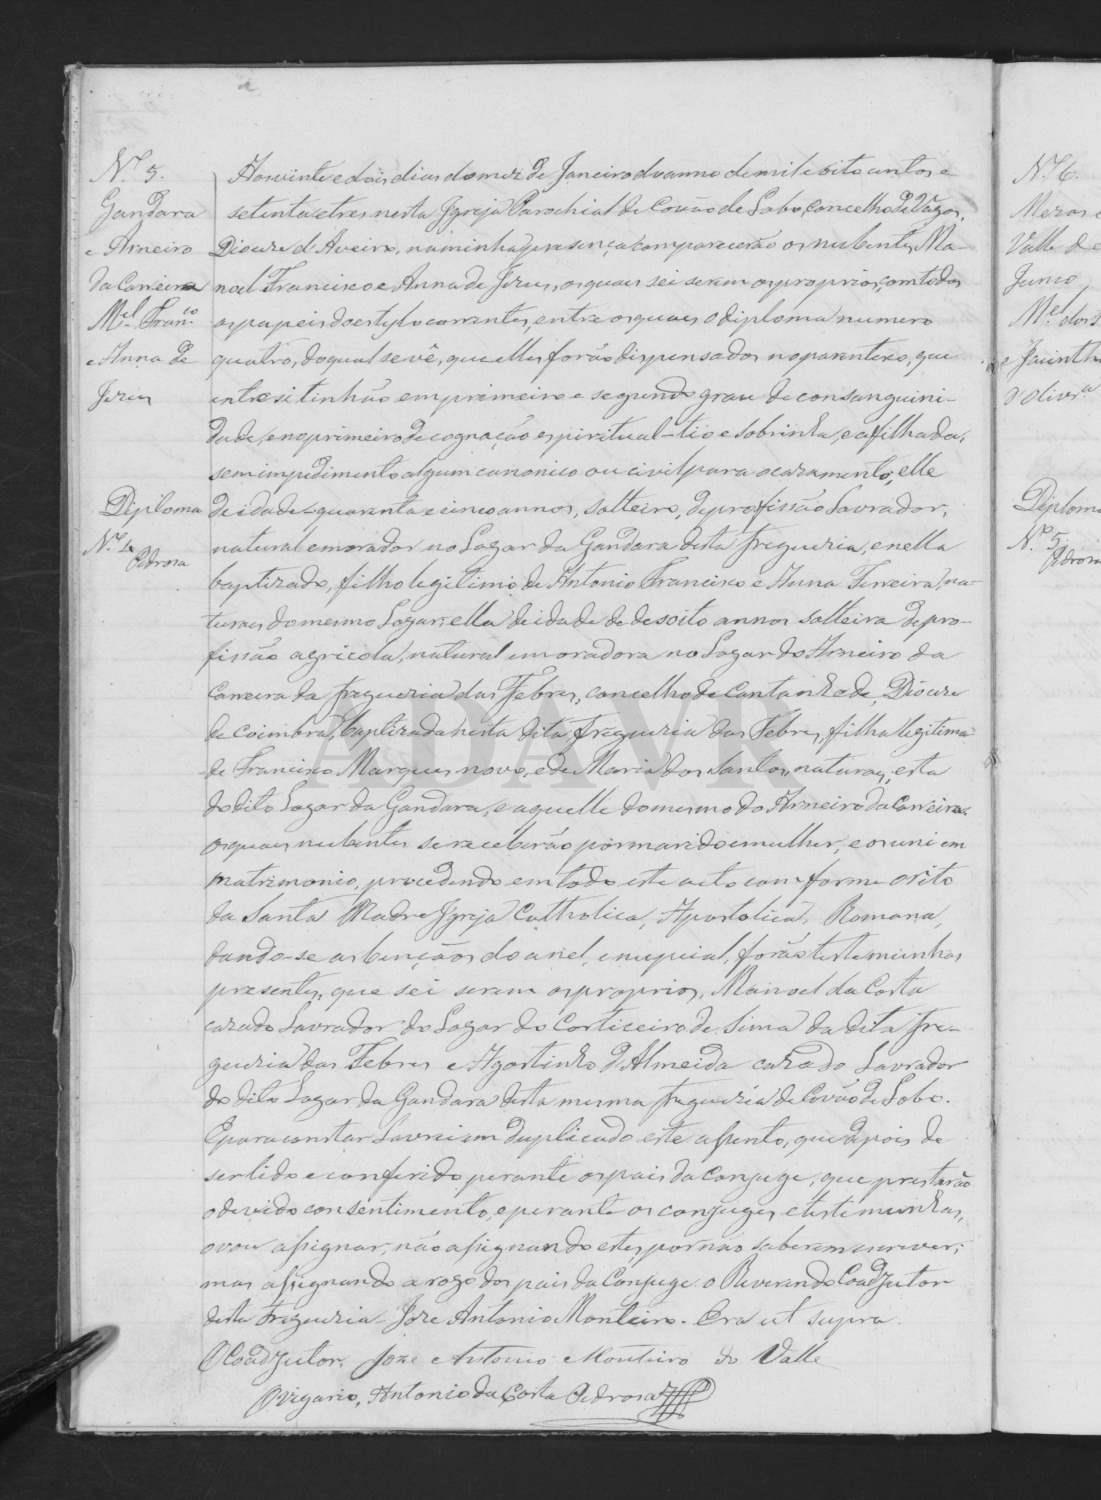 Nº 5.
Gandara
e Arneiro
da Carreira
Mel Franco
e Anna de
Jesus
Diploma
Nº 4
Pedrosa
Aos vinte e dois dias do mez de Janeiro do anno de mil e oito centos e
setenta e tres nesta Igreja Parochial de Covão de Lobo, Concelho de Vagos,
Diocese d'Aveiro, na minha presença comparecerão os nubentes, Ma-
noel Francisco e Anna de Jesus, os quaes sei serem os proprios, com todos
os papeis do estylo correntes, entre os quaes o diploma numero
quatro, do qual se vê, que elles forão dispensados no parentesco, que
entre si tinhão em primeiro e segundo grau de consanguini-
dade, e no primeiro de cognação espiritual - tio e sobrinha, e afilhada,
sem impedimento algum canonico ou civil para o casamento; elle
de idade quarenta e cinco annos, solteiro, de profissão Lavrador,
natural e morador no Lugar da Gandara desta freguezia, e nella
baptizado, filho legitimo de Antonio Francisco e Anna Ferreira, na-
turaes do mesmo Lugar: ella de idade de desoito annos solteira de pro-
fissão agricola, natural e moradora no Lugar do Arneiro da
Carreira da freguezia das Febres, concelho de Cantanhede, Diocese
de Coimbra, baptizada nesta dita freguezia das Febres, filha legitima
de Francisco Marques novo, e de Maria dos Santos, naturaes, esta
do dito Lugar da Gandara, e aquelle do mesmo do Arneiro da Carreira
os quaes nubentes se receberão por marido e mulher, e os uni em
matrimonio, procedendo em todo este acto conforme o rito
da Santa Madre Igreja Catholica, Apostolica, Romana,
dando-se as bençãos do anel, e nupcial, forão testemunhas
presentes, que sei serem os proprios, Manoel da Costa
casado Lavrador do Lugar do Corticeiro de Sima da dita fre-
guezia das Febres e Agostinho d'Almeida casado Lavrador
do dito Lugar da Gandara desta mesma freguezia de Covão de Lobo.
E para constar Lavrei em duplicado este assento, que depois de
ser lido e conferido perante os pais da Conjuge, que prestarão
o devido consentimento, e perante os conjuges e testemunhas,
o vou assignar, não assignando estes, por não saberem escrever;
mas assignando a rogo dos pais da Conjuge o Reverendo Coadjutor
desta freguezia - Jose Antonio Monteiro. Era ut supra.
O Coadjutor, Joze Antonio Monteiro do Valle
O Vigario, Antonio da Costa Pedrosa
Nº 6.
Valle de
Junco
Mel dos
e Jacintha
d'Olivra
Diploma
Nº 5
Pedrosa
ADAVR